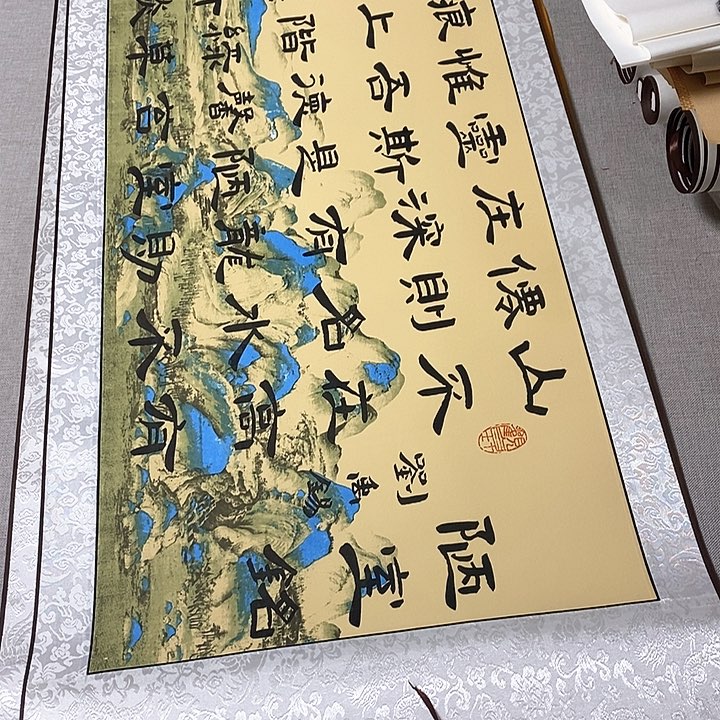 陋室銘
劉禹錫
山不在高有
僊則名水不
在深有龍則
靈斯是陋室
惟吾德馨苔
痕上階綠草